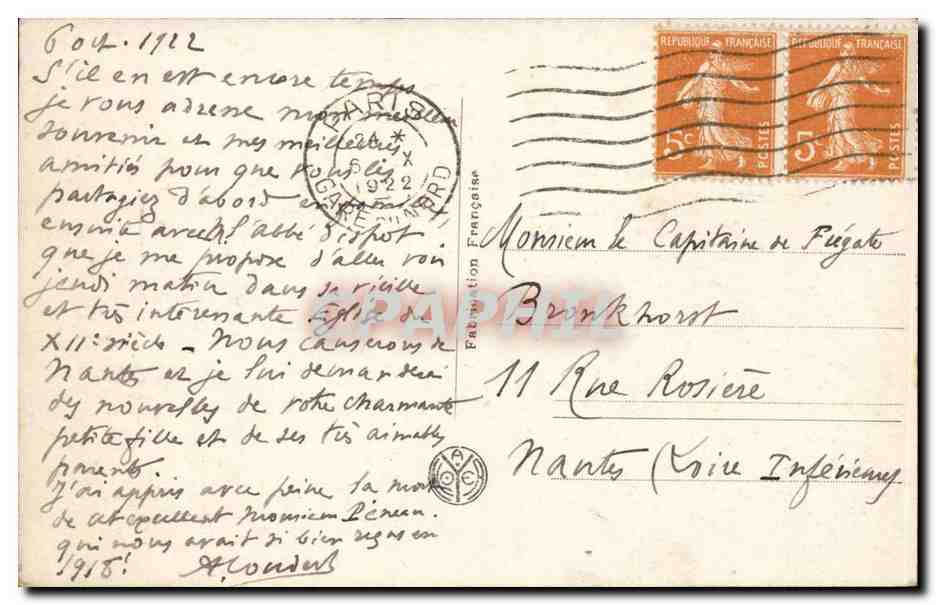 6 oct. 1922
S'il en est encore temps
je vous adresse mon meilleur
souvenir et mes meilleures
amitiés pour que vous les
partagiez d'abord en famille
ensuite avec l'abbé
que je me propose d'aller voir
jeudi matin dans sa vieille
et très intéressante Eglise du
XIIe siècle - Nous causerons de
Nantes et je lui demanderai
des nouvelles de votre charmante
petite fille et de ses très aimables
parents.
J'ai appris avec peine la mort
de cet excellent Monsieur
qui nous avait si bien reçus en
1918!
PARIS
6 X
1922
GARE DU NORD
Fabrication Française
REPUBLIQUE FRANÇAISE
5c
POSTES
REPUBLIQUE FRANÇAISE
5c
POSTES
Monsieur le Capitaine de Frégate
Bronkhorst
11 Rue Rosière
Nantes (Loire Inférieure)
CPAPHIL